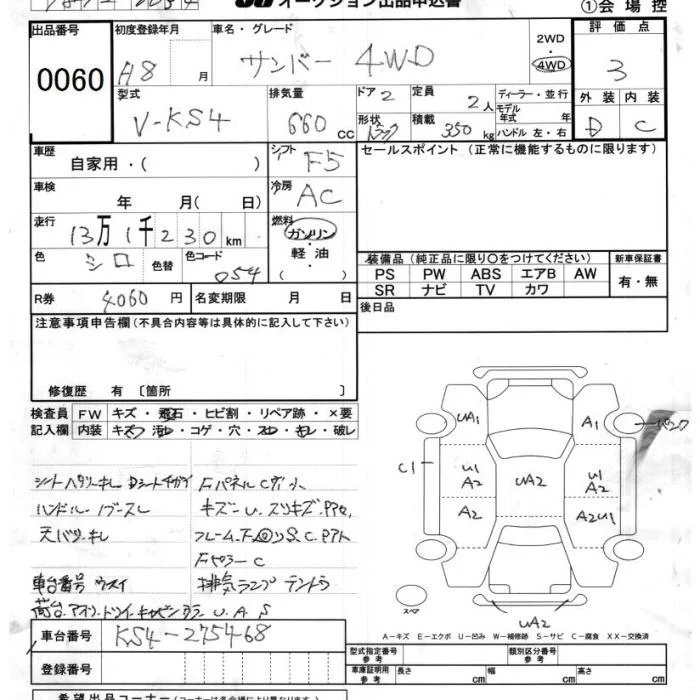 オークション出品申込書
①会場控
出品番号
0060
初度登録年月
H8 月
車名・グレード
サンバー 4WD
2WD
・
4WD
評価点
3
型式
V-KS4
排気量
660 cc
ドア 2
形状 トラック
定員 2人
積載 350 kg
ディーラー・並行
モデル年式 年
ハンドル 左・右
外装 内装
D C
車歴
自家用・( )
シフト F5
セールスポイント (正常に機能するものに限ります)
車検
年 月( 日)
冷房 AC
走行
13万1千230km
燃料
ガソリン
・
軽油
・
( )
色 シロ 色替 色コード 054
装備品 (純正品に限り○をつけてください)
PS PW ABS エアB AW
SR ナビ TV カワ
新車保証書
有・無
R券 4060円 名変期限 月 日
後日品
注意事項申告欄 (不具合内容等は具体的に記入して下さい)
修復歴 有 [箇所 ]
検査員記入欄
FW キズ・飛石・ヒビ割・リペア跡・×要
内装 キズ・汚レ・コゲ・穴・スレ・キレ・破レ
シートヘタリ・キレ Dシートチガイ
ハンドル・ノブスレ
天バリキレ
車台番号 ウスイ
FパネルC
キズ・U.スリキズ
排気ランプ テントウ
U.A.S
UA1 A1 パンク
C1
U1 A2 UA2 U1 A2
A2 A2U1
スペア
UA2
A-キズ E-エクボ U-凹み W-補修跡 S-サビ C-腐食 XX-交換済
車台番号 KS4-275468
登録番号
型式指定番号 参考
類別区分番号 参考
車庫証明用 参考 長さ cm 幅 cm 高さ cm
希望出品コーナー (コーナーは各会場により異なります)